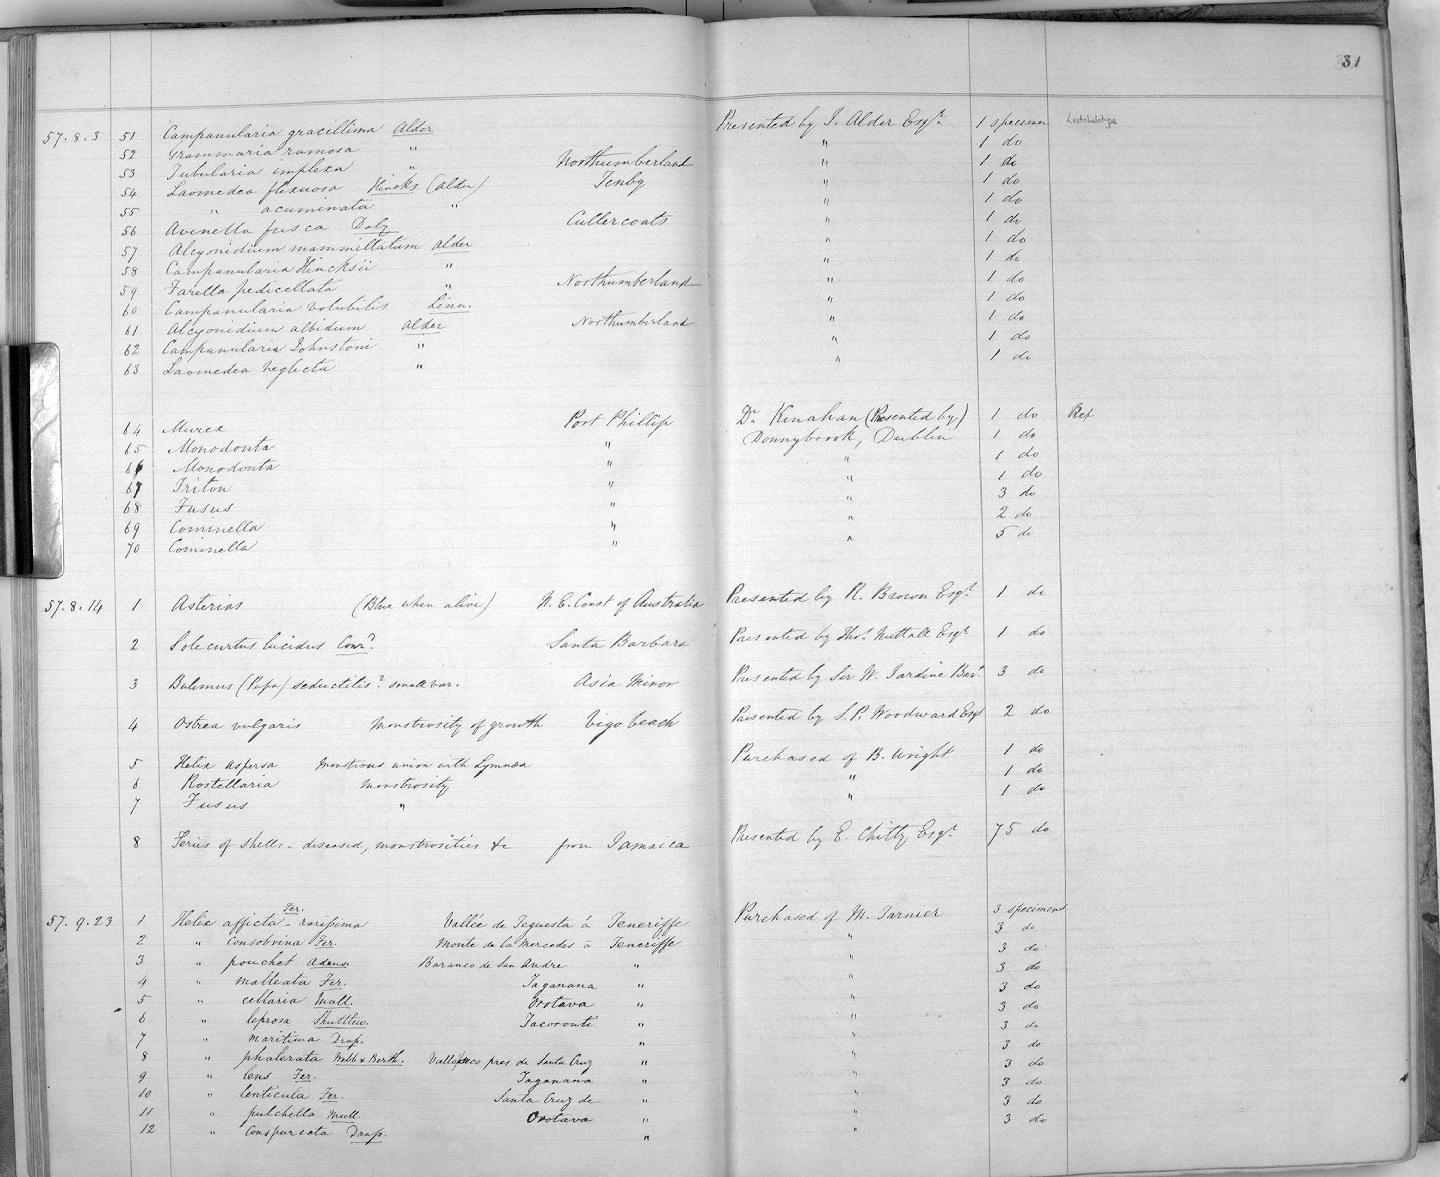 31
57.8.3 51 Campanularia gracillima Alder Presented by J. Alder Esqr. 1 specimen Lectotype
52 Grammaria ramosa " " 1 do
53 Tubularia implexa " Northumberland " 1 do
54 Laomedea flexuosa Hincks (Alder) Tenby " 1 do
55 " acuminata " " 1 do
56 Avenella fusca Daly. Cullercoats " 1 do
57 Alcyonidium mammillatum Alder " 1 do
58 Campanularia Hincksii " " 1 do
59 Farella pedicellata " Northumberland " 1 do
60 Campanularia volubilis Linn. " 1 do
61 Alcyonidium albidum Alder Northumberland " 1 do
62 Campanularia Johnstoni " " 1 do
63 Laomedea neglecta " " 1 do
64 Murex Port Phillip Dr. Kinahan (Presented by) 1 do Ref
65 Monodonta " Donnybrook, Dublin 1 do
66 Monodonta " " 1 do
67 Triton " " 1 do
68 Fusus " " 3 do
69 Cominella " " 2 do
70 Cominella " " 5 do
57.8.14 1 Asterias (Blue when alive) N.E. Coast of Australia Presented by R. Brown Esqr. 1 do
2 Solecurtus lucidus Conr? Santa Barbara Presented by Thos. Nuttall Esqr 1 do
3 Bulimus (Pupa) seductilis? small var. Asia Minor Presented by Sir W. Jardine Bart. 3 do
4 Ostrea vulgaris Monstrosity of growth Vigo beach Presented by S.P. Woodward Esqr 2 do
5 Helix aspersa Monstrous union with Lymnæa Purchased of B. Wright 1 do
6 Rostellaria Monstrosity " 1 do
7 Fusus " " 1 do
8 Series of Shells - diseased, monstrosities &c from Jamaica Presented by E. Chitty Esqr. 75 do
57.9.23 1 Helix afficta Fer. - rarissima Vallée de Tegueste á Teneriffe Purchased of M. Tarnier 3 specimens
2 " consobrina Fer. Monte de la Mercedes á Teneriffe " 3 do
3 " pouchet Adans. Baranco de San Andre " " 3 do
4 " malleata Fer. Taganana " " 3 do
5 " cellaria Mull. Orotava " " 3 do
6 " leprosa Shuttlew. Tacoronte " " 3 do
7 " maritima Drap. " " 3 do
8 " phalerata Webb & Berth. pres de Santa Cruz " " 3 do
9 " lens Fer. Taganana " " 3 do
10 " lenticula Fer. Santa Cruz de " " 3 do
11 " pulchella Mull. Orotava " " 3 do
12 " conspurcata Drap. " " 3 do